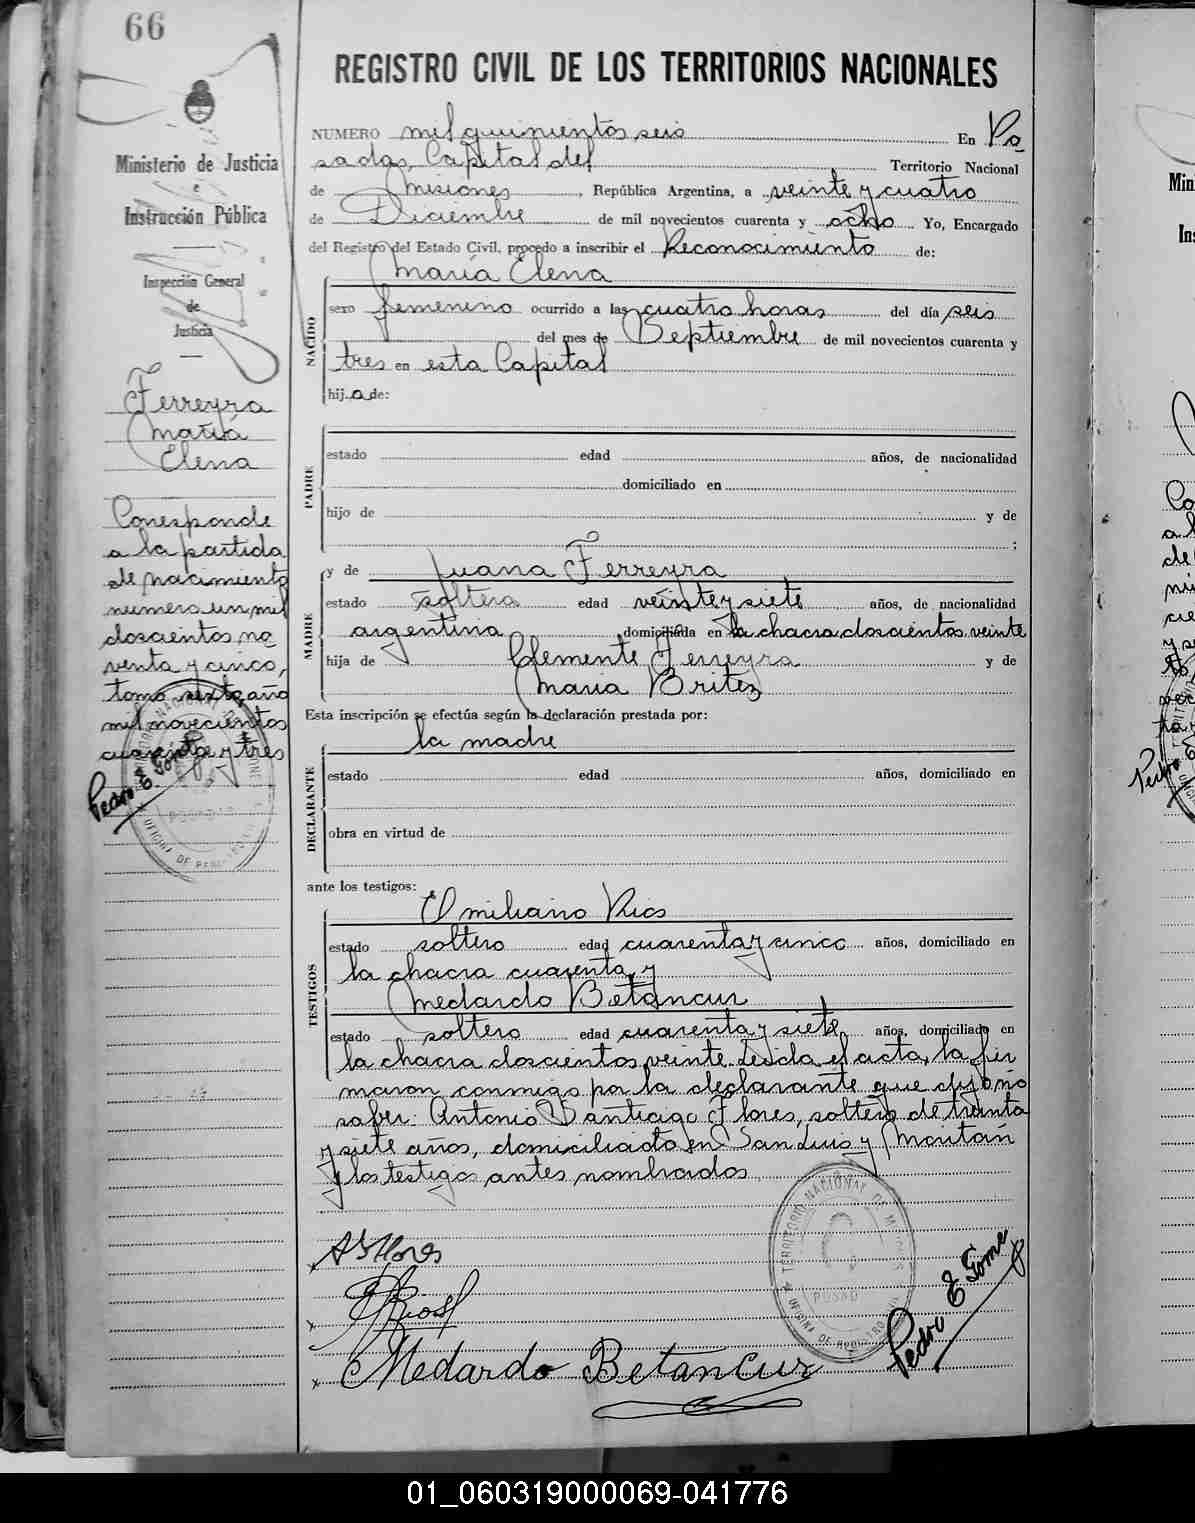 66
Ministerio de Justicia
e
Instrucción Pública
Inspección General
de
Justicia
Ferreyra
María
Elena
Corresponde
a la partida
de nacimiento
numero un mil
doscientos no
venta y cinco,
tomo sexto año
mil novecientos
cuarenta y tres
Pedro E. Gome
REGISTRO CIVIL DE LOS TERRITORIOS NACIONALES
NUMERO mil quinientos seis En Po
sadas, Capital del Territorio Nacional
de Misiones, República Argentina, a veinte y cuatro
de Diciembre de mil novecientos cuarenta y ocho Yo, Encargado
del Registro del Estado Civil, procedo a inscribir el Reconocimiento de:
María Elena
NACIDO
sexo femenino ocurrido a las cuatro horas del día seis
del mes de Septiembre de mil novecientos cuarenta y
tres en esta Capital
hija de:
PADRE
estado edad años, de nacionalidad
domiciliado en
hijo de y de
;
MADRE
y de Juana Ferreyra
estado soltera edad veinte y siete años, de nacionalidad
argentina domiciliada en la chacra doscientos veinte
hija de Clemente Ferreyra y de
María Britez
Esta inscripción se efectúa según la declaración prestada por:
la madre
DECLARANTE
estado edad años, domiciliado en
obra en virtud de
ante los testigos:
Emiliano Rios
TESTIGOS
estado soltero edad cuarenta y cinco años, domiciliado en
la chacra cuarenta y
Medardo Betancur
estado soltero edad cuarenta y siete años, domiciliado en
la chacra doscientos veinte. Leída el acta, la fir
maron conmigo por la declarante que dijo no
saber: Antonio Santiago Flores, soltero de treinta
y siete años, domiciliado en San Luis y Moritán
y los testigos antes nombrados
A S Flores
E Rios
Medardo Betancur
TERRITORIO NACIONAL DE MISIONES
POSADAS
OFICINA DE REGISTRO CIVIL
Pedro E Gome
01_060319000069-041776